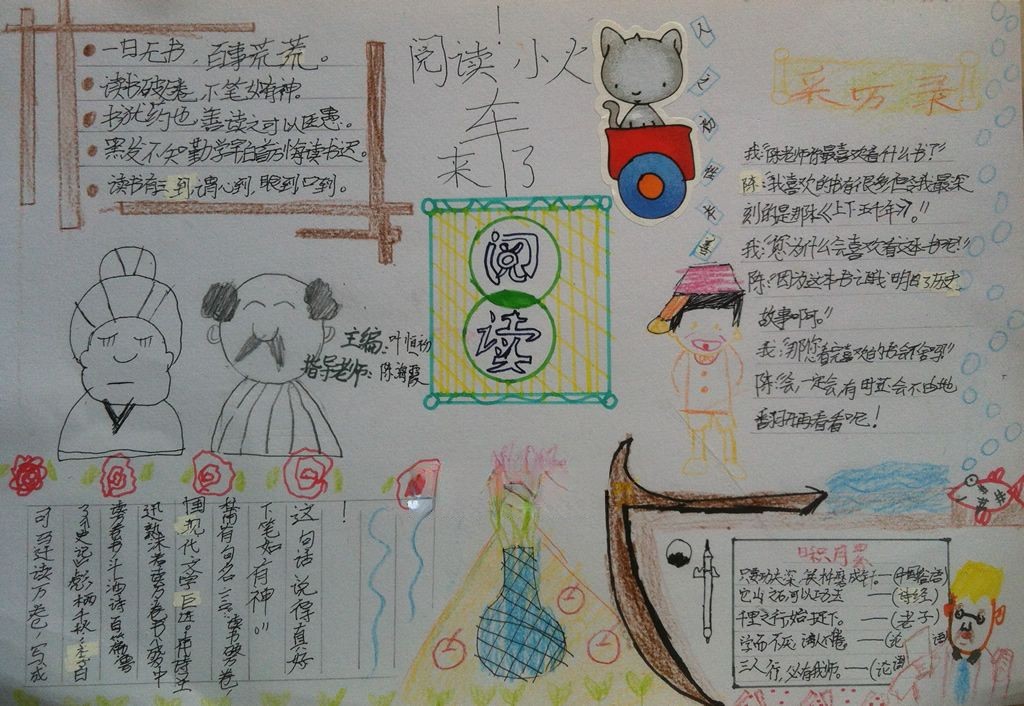 一日无书，百事荒芜。
读书破万卷，下笔如有神。
书犹药也，善读之可以医愚。
黑发不知勤学早白首方悔读书迟。
读书有三到谓心到，眼到口到。
阅读小火
车
来了
阅
读
主编：叶恒初
指导老师：陈海霞
采访录
我：“陈老师你最喜欢看什么书？”
陈：“我喜欢的书有很多但令我最深
刻的是那本《上下五千年》。”
我：“您为什么会喜欢看这本书呢？”
陈：“因为这本书让我明白了历史
故事啊。”
我：“那您看完喜欢的书会
陈：会，一定会有用还会不由地
翻开再看看呢！
！
这句话说得真好
下笔如有神”。
甫有句名言：读书破万卷，
中国现代文学巨匠。唐诗圣
迅熟读
读书斗酒诗百篇 鲁
了《史记》 李白
司马迁读万卷，写成
日积月累
只要功夫深，铁杵磨成针。——
它山之石可以攻玉 ——（诗经）
千里之行始于足下。——（老子）
学而不厌，诲人不倦 ——（论语）
三人行，必有我师。——（论语）